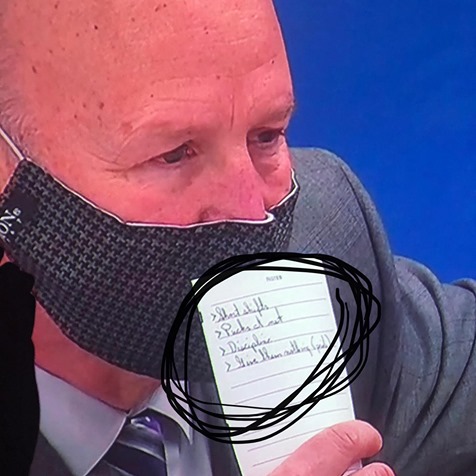 ON®
NOTES
> Short shifts
> Pucks at net
> Discipline
> Give them nothing